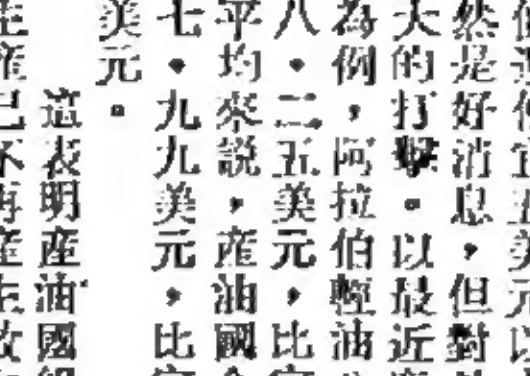 美元以
然是好消息，但對
大的打擊。以最近
為例，阿拉伯輕油
八·二五美元，比
平均來説，産油國
七·九九美元，比
美元。
這表明産油國